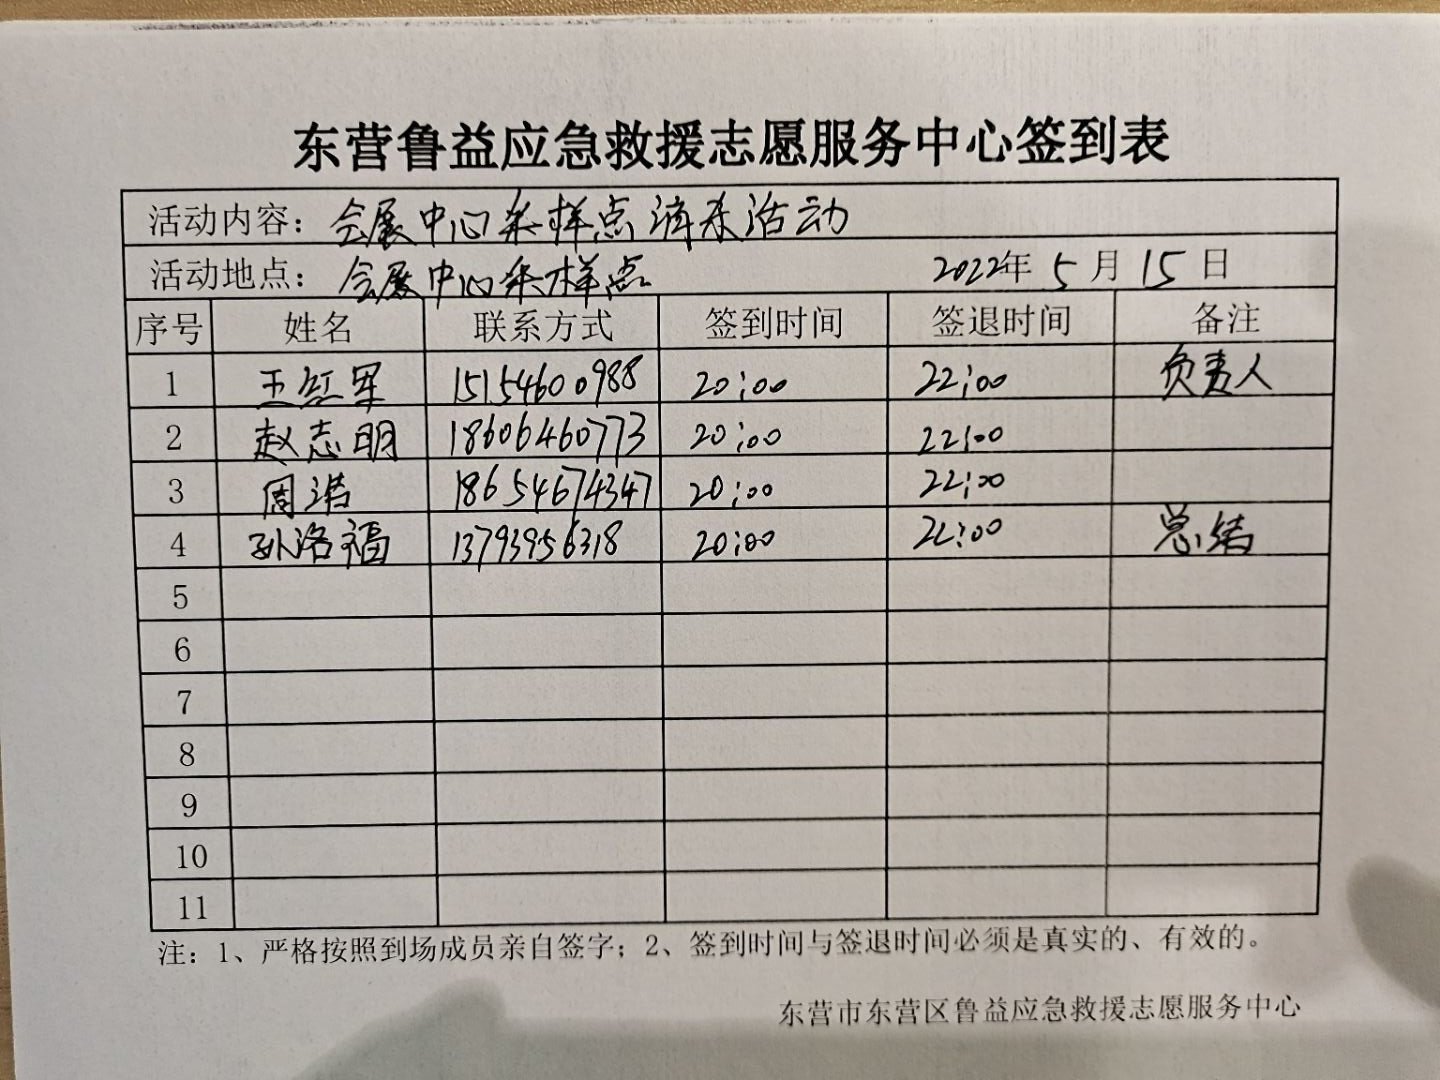 东营鲁益应急救援志愿服务中心签到表
活动内容：会展中心采样点消杀活动
活动地点：会展中心采样点 2022年 5 月 15 日
序号 姓名 联系方式 签到时间 签退时间 备注
1 王红军 15154600988 20:00 22:00 负责人
2 赵志明 18606460773 20:00 22:00
3 周浩 18654674347 20:00 22:00
4 孙洛福 13793956318 20:00 22:00 总结
5
6
7
8
9
10
11
注：1、严格按照到场成员亲自签字；2、签到时间与签退时间必须是真实的、有效的。
东营市东营区鲁益应急救援志愿服务中心